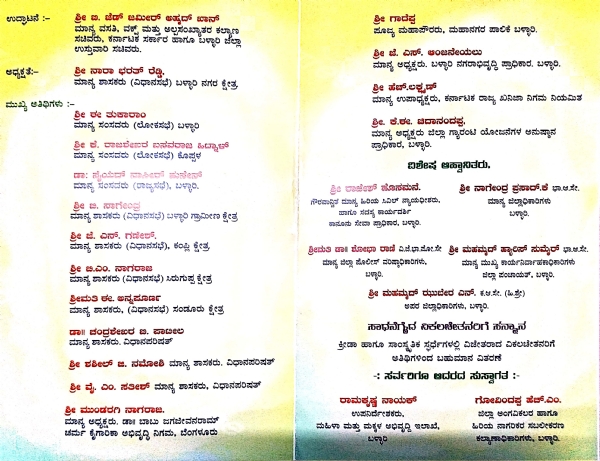 ಉದ್ಘಾಟನೆ :- ಶ್ರೀ ಬಿ. ಜೆಡ್ ಜಮೀರ್ ಅಹ್ಮದ್ ಖಾನ್
ಮಾನ್ಯ ವಸತಿ, ವಕ್ಫ್ ಮತ್ತು ಅಲ್ಪಸಂಖ್ಯಾತರ ಕಲ್ಯಾಣ
ಸಚಿವರು, ಕರ್ನಾಟಕ ಸರ್ಕಾರ ಹಾಗೂ ಬಳ್ಳಾರಿ ಜಿಲ್ಲಾ
ಉಸ್ತುವಾರಿ ಸಚಿವರು.
ಅಧ್ಯಕ್ಷತೆ:- ಶ್ರೀ ನಾರಾ ಭರತ್ ರೆಡ್ಡಿ,
ಮಾನ್ಯ ಶಾಸಕರು (ವಿಧಾನಸಭೆ) ಬಳ್ಳಾರಿ ನಗರ ಕ್ಷೇತ್ರ
ಮುಖ್ಯ ಅತಿಥಿಗಳು :-
ಶ್ರೀ ಈ ತುಕಾರಾಂ
ಮಾನ್ಯ ಸಂಸದರು (ಲೋಕಸಭೆ) ಬಳ್ಳಾರಿ
ಶ್ರೀ ಕೆ. ರಾಜಶೇಖರ ಬಸವರಾಜ ಹಿಟ್ನಾಳ್
ಮಾನ್ಯ ಸಂಸದರು (ಲೋಕಸಭೆ) ಕೊಪ್ಪಳ
ಡಾ: ಸೈಯದ್ ನಾಸೀರ್ ಹುಸೇನ್
ಮಾನ್ಯ ಸಂಸದರು (ರಾಜ್ಯಸಭೆ), ಬಳ್ಳಾರಿ.
ಶ್ರೀ ಬಿ. ನಾಗೇಂದ್ರ
ಮಾನ್ಯ ಶಾಸಕರು (ವಿಧಾನಸಭೆ) ಬಳ್ಳಾರಿ ಗ್ರಾಮೀಣ ಕ್ಷೇತ್ರ
ಶ್ರೀ ಜೆ. ಎನ್. ಗಣೇಶ್,
ಮಾನ್ಯ ಶಾಸಕರು, (ವಿಧಾನಸಭೆ), ಕಂಪ್ಲಿ ಕ್ಷೇತ್ರ
ಶ್ರೀ ಬಿ.ಎಂ. ನಾಗರಾಜ
ಮಾನ್ಯ ಶಾಸಕರು (ವಿಧಾನಸಭೆ) ಸಿರುಗುಪ್ಪ ಕ್ಷೇತ್ರ
ಶ್ರೀಮತಿ ಈ. ಅನ್ನಪೂರ್ಣ
ಮಾನ್ಯ ಶಾಸಕರು, (ವಿಧಾನಸಭೆ) ಸಂಡೂರು ಕ್ಷೇತ್ರ
ಡಾ॥ ಚಂದ್ರಶೇಖರ ಬಿ. ಪಾಟೀಲ
ಮಾನ್ಯ ಶಾಸಕರು. ವಿಧಾನಪರಿಷತ್
ಶ್ರೀ ಶಶೀಲ್ ಜಿ. ನಮೋಶಿ ಮಾನ್ಯ ಶಾಸಕರು. ವಿಧಾನಪರಿಷತ್
ಶ್ರೀ ವೈ. ಎಂ. ಸತೀಶ್ ಮಾನ್ಯ ಶಾಸಕರು, ವಿಧಾನಪರಿಷತ್
ಶ್ರೀ ಮುಂಡರಗಿ ನಾಗರಾಜ.
ಮಾನ್ಯ ಅಧ್ಯಕ್ಷರು. ಡಾ॥ ಬಾಬು ಜಗಜೀವನರಾಮ್
ಚರ್ಮ ಕೈಗಾರಿಕಾ ಅಭಿವೃದ್ಧಿ ನಿಗಮ, ಬೆಂಗಳೂರು
ಶ್ರೀ ಗಾದೆಪ್ಪ
ಪೂಜ್ಯ ಮಹಾಪೌರರು, ಮಹಾನಗರ ಪಾಲಿಕೆ ಬಳ್ಳಾರಿ.
ಶ್ರೀ ಜೆ. ಎಸ್. ಆಂಜನೇಯಲು
ಮಾನ್ಯ ಅಧ್ಯಕ್ಷರು. ಬಳ್ಳಾರಿ ನಗರಾಭಿವೃದ್ಧಿ ಪ್ರಾಧಿಕಾರ, ಬಳ್ಳಾರಿ.
ಶ್ರೀ ಹೆಚ್.ಲಕ್ಷ್ಮಣ್
ಮಾನ್ಯ ಉಪಾಧ್ಯಕ್ಷರು, ಕರ್ನಾಟಕ ರಾಜ್ಯ ಖನಿಜಾ ನಿಗಮ ನಿಯಮಿತ
ಶ್ರೀ. ಕೆ.ಈ. ಚಿದಾನಂದಪ್ಪ,
ಮಾನ್ಯ ಅಧ್ಯಕ್ಷರು ಜಿಲ್ಲಾ ಗ್ಯಾರಂಟಿ ಯೋಜನೆಗಳ ಅನುಷ್ಠಾನ
ಪ್ರಾಧಿಕಾರ, ಬಳ್ಳಾರಿ.
ವಿಶೇಷ ಆಹ್ವಾನಿತರು.
ಶ್ರೀ ರಾಜೇಶ್ ಹೊಸಮನೆ.
ಗೌರವಾನ್ವಿತ ಮಾನ್ಯ ಹಿರಿಯ ಸಿವಿಲ್ ನ್ಯಾಯಧೀಶರು,
ಹಾಗೂ ಸದಸ್ಯ ಕಾರ್ಯದರ್ಶಿ
ಕಾನೂನು ಸೇವಾ ಪ್ರಾಧಿಕಾರ, ಬಳ್ಳಾರಿ.
ಶ್ರೀ ನಾಗೇಂದ್ರ ಪ್ರಸಾದ್.ಕೆ ಭಾ.ಆ.ಸೇ.
ಮಾನ್ಯ ಜಿಲ್ಲಾಧಿಕಾರಿಗಳು
ಬಳ್ಳಾರಿ.
ಶ್ರೀಮತಿ ಡಾ॥ ಶೋಭಾ ರಾಣಿ ವಿ.ಜೆ.ಭಾ.ಪೋ.ಸೇ
ಮಾನ್ಯ ಜಿಲ್ಲಾ ಪೊಲೀಸ್ ವರಿಷ್ಠಾಧಿಕಾರಿಗಳು,
ಬಳ್ಳಾರಿ.
ಶ್ರೀ ಮಹಮ್ಮದ್ ಹ್ಯಾರಿಸ್ ಸುಮೈರ್ ಭಾ.ಆ.ಸೇ.
ಮಾನ್ಯ ಮುಖ್ಯ ಕಾರ್ಯನಿರ್ವಾಹಣಾಧಿಕಾರಿಗಳು
ಜಿಲ್ಲಾ ಪಂಚಾಯತ್, ಬಳ್ಳಾರಿ.
ಶ್ರೀ ಮಹಮ್ಮದ್ ಝುಬೇರ ಎನ್. ಕ.ಆ.ಸೇ. (ಹಿ.ಶ್ರೇ)
ಅಪರ ಜಿಲ್ಲಾಧಿಕಾರಿಗಳು, ಬಳ್ಳಾರಿ.
ಸಾಧನೆಗೈದ ವಿಕಲಚೇತನರಿಗೆ ಸನ್ಮಾನ
ಕ್ರೀಡಾ ಹಾಗೂ ಸಾಂಸ್ಕೃತಿಕ ಸ್ಪರ್ಧೆಗಳಲ್ಲಿ ವಿಜೇತರಾದ ವಿಕಲಚೇತನರಿಗೆ
ಅತಿಥಿಗಳಿಂದ ಬಹುಮಾನ ವಿತರಣೆ
-: ಸರ್ವರಿಗೂ ಆದರದ ಸುಸ್ವಾಗತ :-
ರಾಮಕೃಷ್ಣ ನಾಯಕ್
ಉಪನಿರ್ದೇಶಕರು,
ಮಹಿಳಾ ಮತ್ತು ಮಕ್ಕಳ ಅಭಿವೃದ್ಧಿ ಇಲಾಖೆ,
ಬಳ್ಳಾರಿ
ಗೋವಿಂದಪ್ಪ ಹೆಚ್.ಎಂ.
ಜಿಲ್ಲಾ ಅಂಗವಿಕಲರ ಹಾಗೂ
ಹಿರಿಯ ನಾಗರಿಕರ ಸಬಲೀಕರಣ
ಕಲ್ಯಾಣಾಧಿಕಾರಿಗಳು, ಬಳ್ಳಾರಿ.